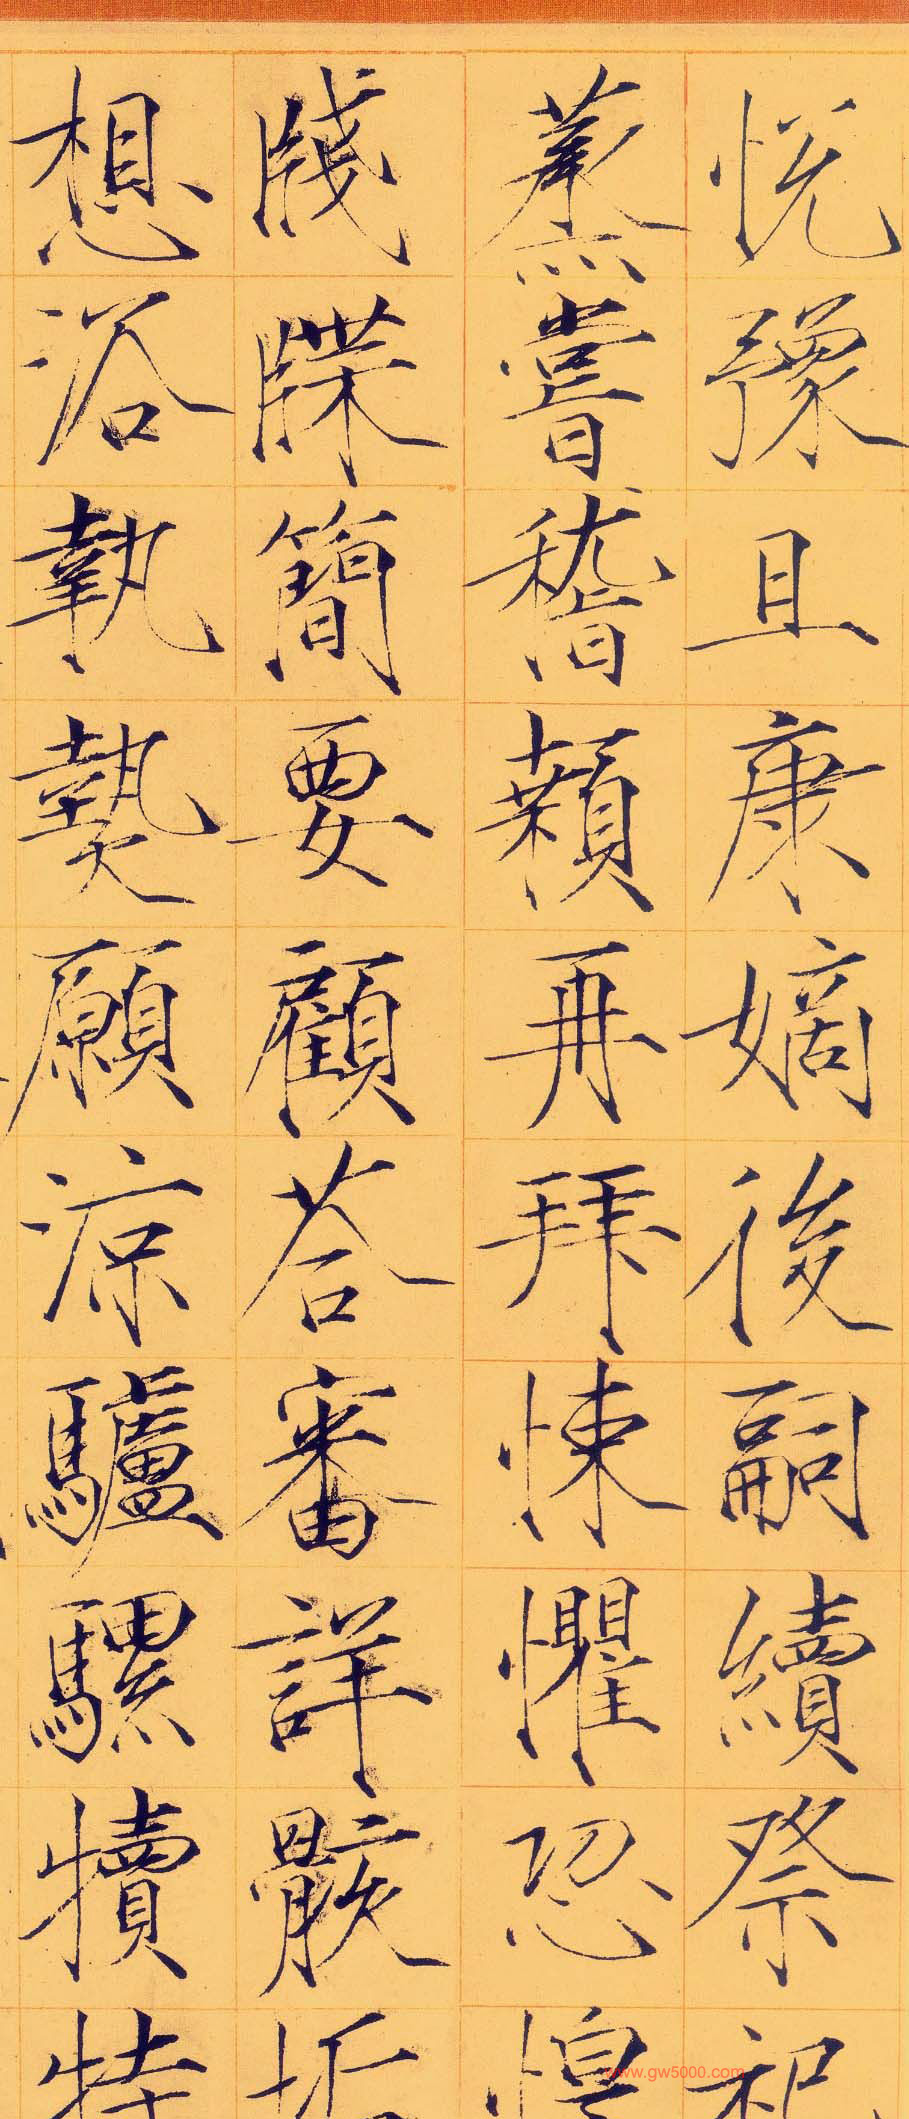 悦豫且康嫡後嗣續祭祀
蒸嘗稽顙再拜悚懼恐惶
牋牒簡要顧荅審詳骸垢
想浴執熱願涼驢騾犢特
www.gw5000.com